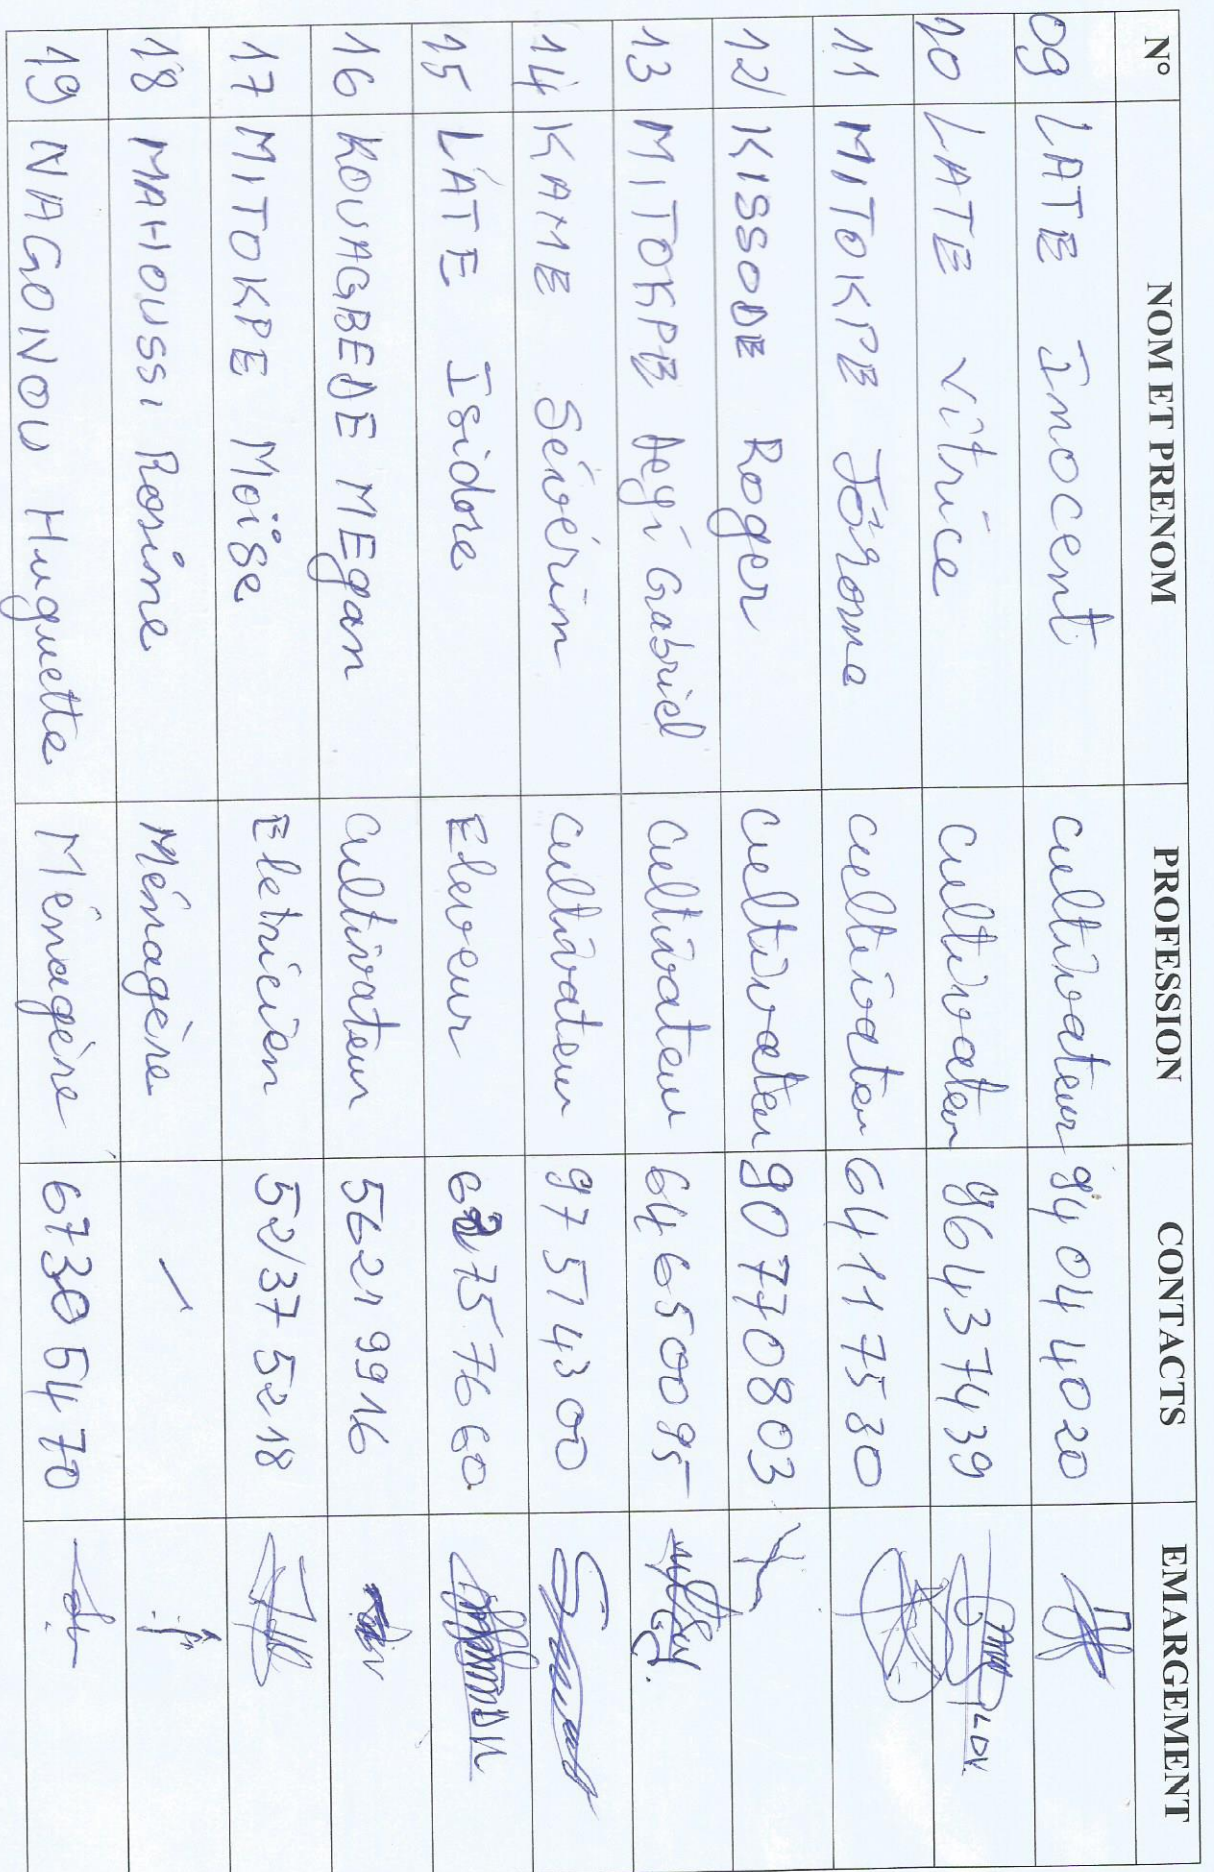 N° NOM ET PRENOM PROFESSION CONTACTS EMARGEMENT
09 LATE Inocent cultivateur 94044020
10 LATE Vitrice cultivateur 96437439
11 MITOKPE Jérome cultivateur 64117530
12 KISSODE Roger cultivateur 90770803
13 MITOKPE Gabriel cultivateur 64650095
14 KAME Sévérin cultivateur 97514300
15 LATE Isidore Eleveur 62757660
16 KOUAGBEDE MEgan cultivateur 56219916
17 MITOKPE Moïse Eletricien 52375218
18 MAHOUSSI Rosine Ménagère /
19 NAGONOU Huguette Ménagère 67305470